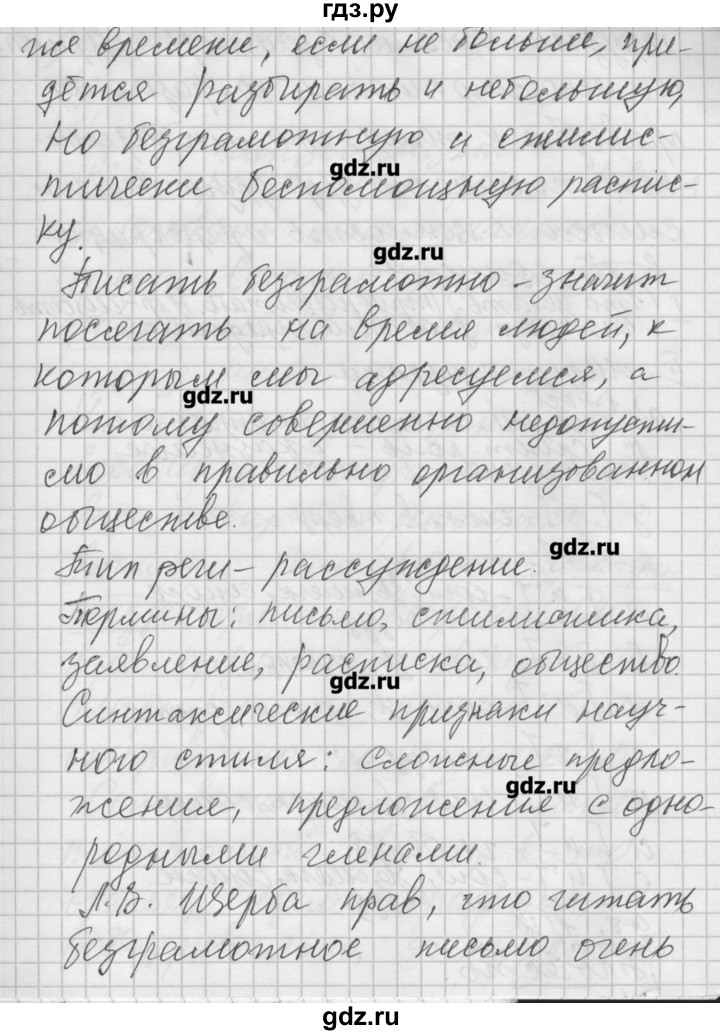 гдз.ру
же времени, если не больше, при-
дётся разбирать и небольшую,
но безграмотную и стилис-
gdz.ru
тически беспомощную распис-
ку.
gdz.ru
Писать безграмотно - значит
посягать на время людей, к
которым мы адресуемся, а
gdz.ru
потому совершенно недопусти-
мо в правильно организованном
обществе.
gdz.ru
Тип речи - рассуждение.
Термины: письмо, стилистика,
заявление, расписка, общество
gdz.ru
Синтаксические признаки науч-
ного стиля: сложные предло-
gdz.ru
жения, предложения с одно-
родными членами.
Л.В. Щерба прав, что читать
безграмотное письмо очень
gdz.ru